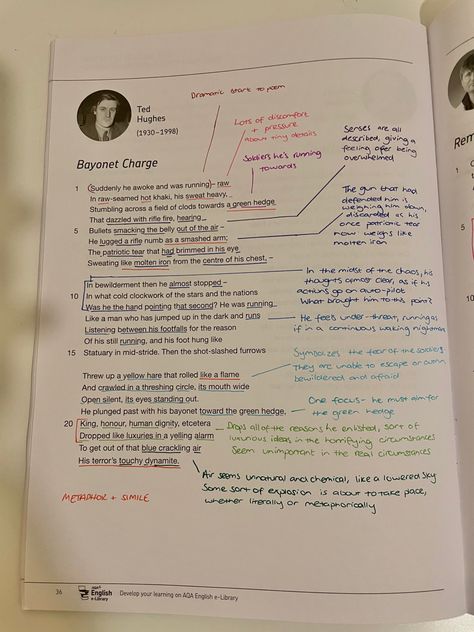 Ted
Hughes
(1930–1998)
Dramatic start to poem
Lots of discomfort
+ pressure
about tiny details
Soldiers he's running
towards
Senses are all
described, giving a
feeling of being
overwhelmed
Bayonet Charge
1 Suddenly he awoke and was running – raw
In raw-seamed hot khaki, his sweat heavy,
Stumbling across a field of clods towards a green hedge
That dazzled with rifle fire, hearing
5 Bullets smacking the belly out of the air –
He lugged a rifle numb as a smashed arm;
The patriotic tear that had brimmed in his eye
Sweating like molten iron from the centre of his chest, –
The gun that had
defended him is
weighing him down,
discarded as his
once patriotic tear
now weighs like
molten iron
In bewilderment then he almost stopped –
10 In what cold clockwork of the stars and the nations
Was he the hand pointing that second? He was running
Like a man who has jumped up in the dark and runs
Listening between his footfalls for the reason
Of his still running, and his foot hung like
15 Statuary in mid-stride. Then the shot-slashed furrows
In the midst of the chaos, his
thoughts almost clear, as if his
actions go on auto-pilot
What brought him to this point?
He feels under-threat, running as
if in a continuous waking nightmare
Threw up a yellow hare that rolled like a flame
And crawled in a threshing circle, its mouth wide
Open silent, its eyes standing out.
He plunged past with his bayonet toward the green hedge,
20 King, honour, human dignity, etcetera
Dropped like luxuries in a yelling alarm
To get out of that blue crackling air
His terror's touchy dynamite.
Symbolizes the fear of the soldiers
They are unable to escape or
bewildered and afraid
One focus- he must aim for
the green hedge
Drops all of the reasons he enlisted, sort of
luxurious ideas in the horrifying circumstances
Seem unimportant in the real circumstances
Air seems unnatural and chemical, like a lowered sky
Some sort of explosion is about to take place,
whether literally or metaphorically
METAPHOR + SIMILE
36
AQA
English
e-Library
Develop your learning on AQA English e-Library